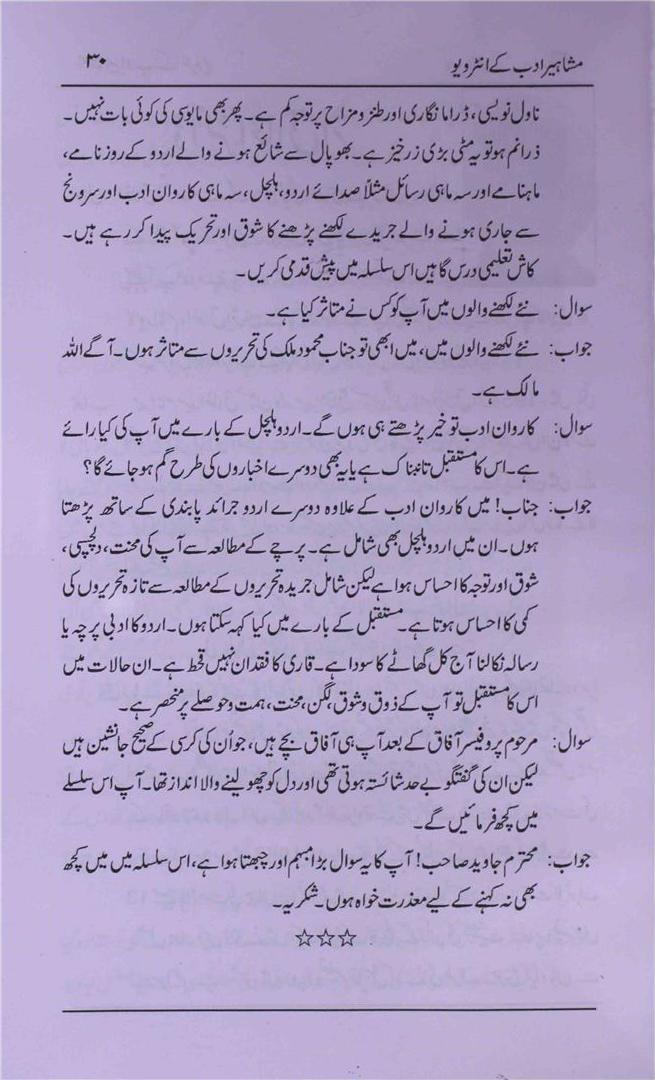 مشاہیر ادب کے انٹرویو
۳۰
ناول نویسی، ڈراما نگاری اور طنز و مزاح پر توجہ کم ہے۔ پھر بھی مایوسی کی کوئی بات نہیں۔
ذرا نم ہو تو یہ مٹی بڑی زرخیز ہے۔ بھوپال سے شائع ہونے والے اردو کے روزنامے،
ماہنامے اور سہ ماہی رسائل مثلاً صدائے اردو، ہلچل، سہ ماہی کاروان ادب اور سرونج
سے جاری ہونے والے جریدے لکھنے پڑھنے کا شوق اور تحریک پیدا کر رہے ہیں۔
کاش تعلیمی درس گاہیں اس سلسلہ میں پیش قدمی کریں۔
سوال: نئے لکھنے والوں میں آپ کو کس نے متاثر کیا ہے۔
جواب: نئے لکھنے والوں میں، میں ابھی تو جناب محمود ملک کی تحریروں سے متاثر ہوں۔ آگے اللہ
مالک ہے۔
سوال: کاروان ادب تو خیر پڑھتے ہی ہوں گے۔ اردو ہلچل کے بارے میں آپ کی کیا رائے
ہے۔ اس کا مستقبل تابناک ہے یا یہ بھی دوسرے اخباروں کی طرح گم ہو جائے گا؟
جواب: جناب! میں کاروان ادب کے علاوہ دوسرے اردو جرائد پابندی کے ساتھ پڑھتا
ہوں۔ ان میں اردو ہلچل بھی شامل ہے۔ پرچے کے مطالعہ سے آپ کی محنت، دلچسپی،
شوق اور توجہ کا احساس ہوا ہے لیکن شامل جریدہ تحریروں کے مطالعہ سے تازہ تحریروں کی
کمی کا احساس ہوتا ہے۔ مستقبل کے بارے میں کیا کہہ سکتا ہوں۔ اردو کا ادبی پرچہ یا
رسالہ نکالنا آج کل گھاٹے کا سودا ہے۔ قاری کا فقدان نہیں قحط ہے۔ ان حالات میں
اس کا مستقبل تو آپ کے ذوق و شوق، لگن، محنت، ہمت و حوصلے پر منحصر ہے۔
سوال: مرحوم پروفیسر آفاق کے بعد آپ ہی آفاق بچے ہیں، جو اُن کی کرسی کے صحیح جانشین ہیں
لیکن ان کی گفتگو بے حد شائستہ ہوتی تھی اور دل کو چھو لینے والا انداز تھا۔ آپ اس سلسلے
میں کچھ فرمائیں گے۔
جواب: محترم جاوید صاحب! آپ کا یہ سوال بڑا مبہم اور چھبتا ہوا ہے، اس سلسلہ میں میں کچھ
بھی نہ کہنے کے لیے معذرت خواہ ہوں۔ شکریہ۔
☆☆☆